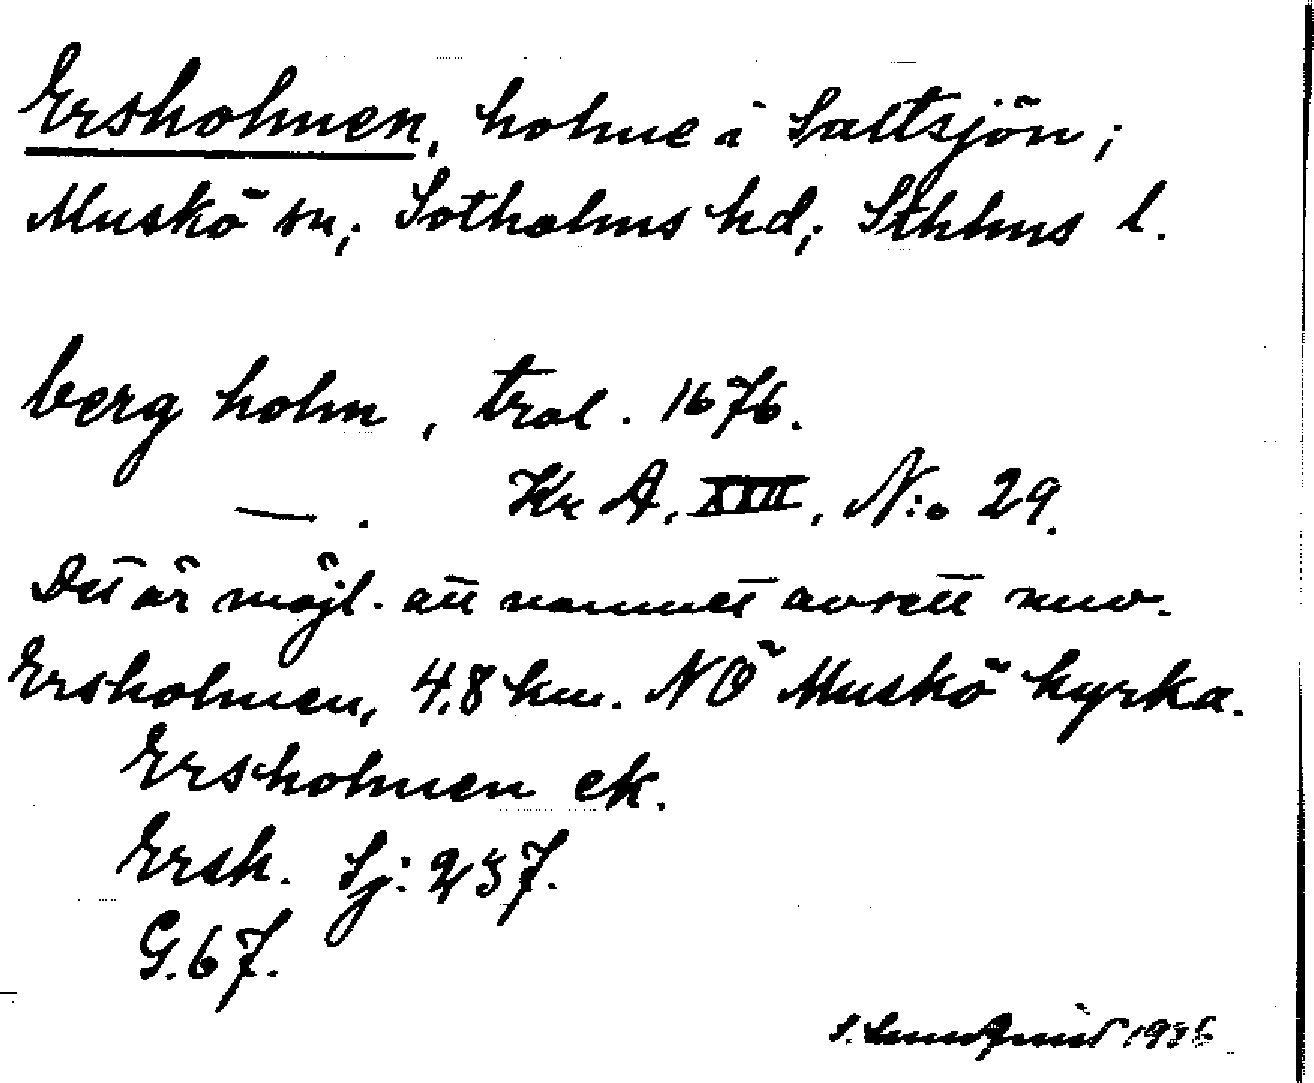 Ersholmen, holme i Saltsjön;
Muskö sn; Sotholms hd; Sthlms l.
berg holm, tral. 1676.
— . Kr A, XVII, N:o 29.
Det är möjl. att namnet avsett nuv.
Ersholmen, 4,8 km. NÖ Muskö kyrka.
Ersholmen ek.
Ersh. Sj: 237.
G. 67.
S.